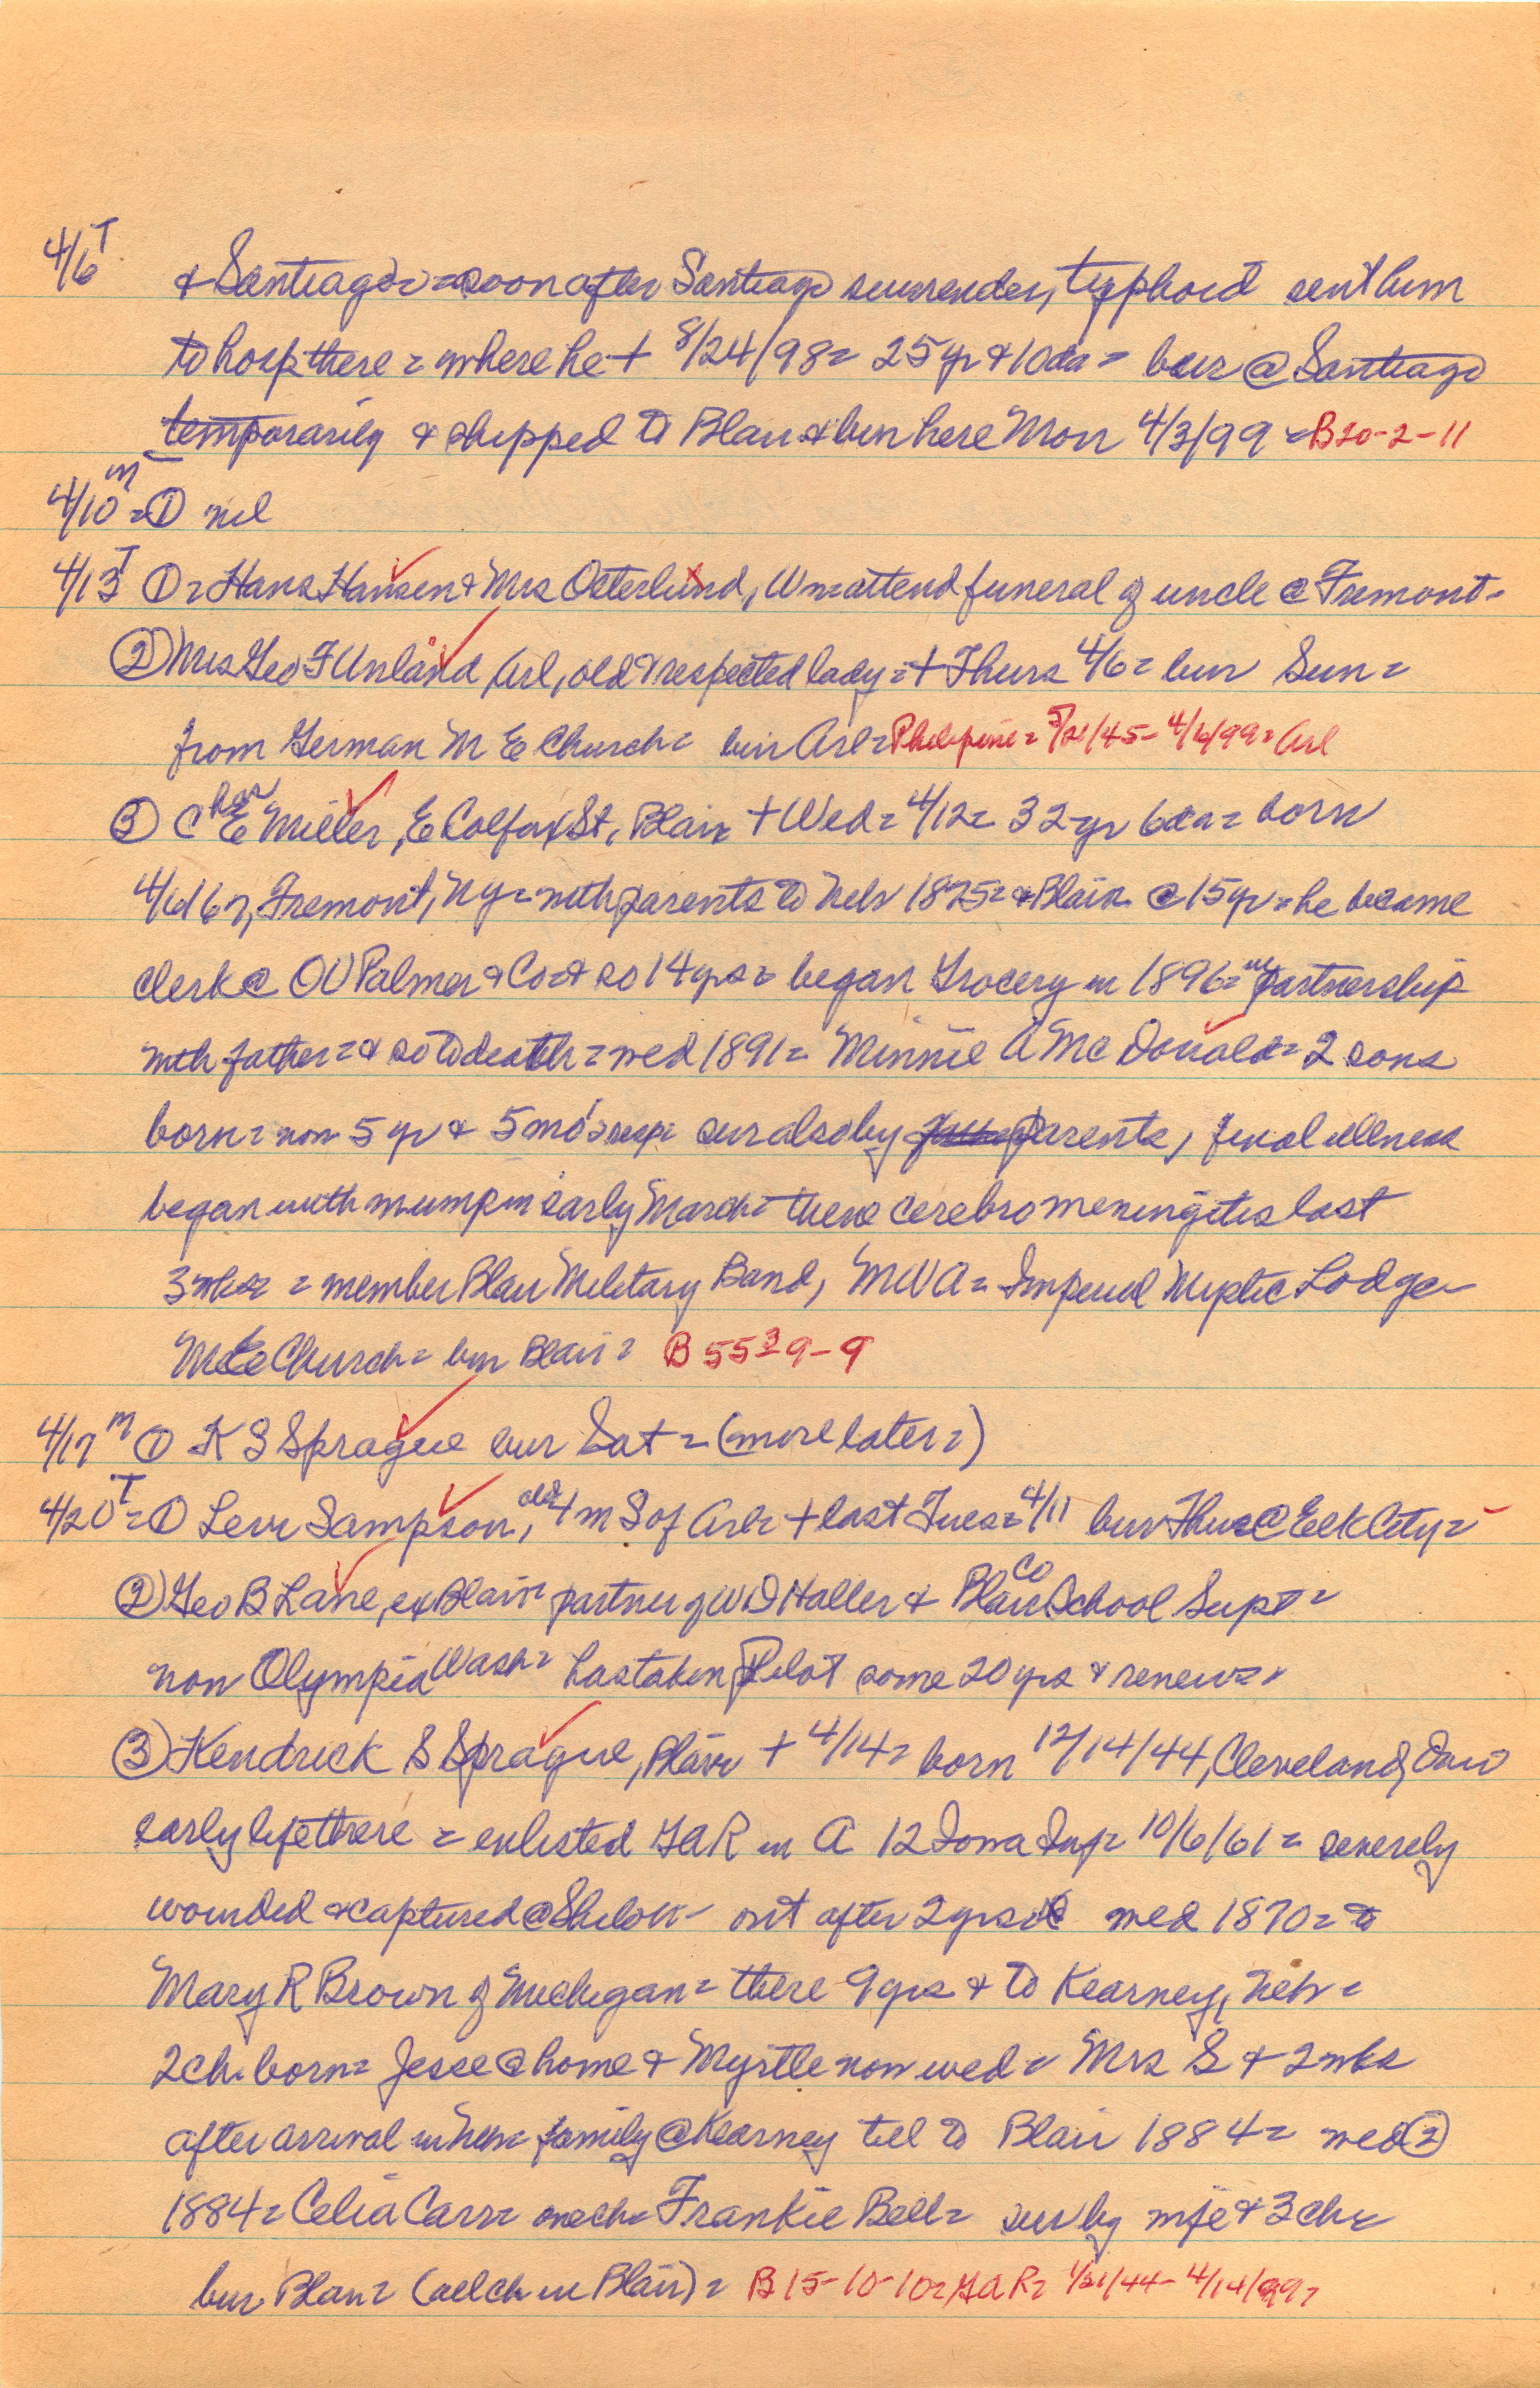 4/6 T & Santiago = soon after Santiago surrender, typhoid sent him
to hosp there = where he + 8/24/98 = 25 yr & 10 da = bur @ Santiago
temporarily & shipped to Blair & bur here Mon 4/3/99 = B20-2-11
4/10 M = ① nil
4/13 T ① = Hans Hansen & Mrs Osterlund, Wm attend funeral of uncle @ Fremont =
② Mrs Geo F Unland, Arl, old & respected lady = + Thurs 4/6 = bur Sun =
from German M E Church = bur Arl = Philipine = /21/45 - 4/6/99 = Arl
③ Chas E Miller, E Colfax St, Blair + Wed = 4/12 = 32 yr 6 da = born
4/6/67, Fremont, NY = with parents to Neb 1875 = & Blair @ 15 yr = he became
clerk @ OV Palmer & Co = & so 14 yrs = began Grocery in 1896 = in partnership
with father = & so to death = wed 1891 = Minnie A McDonald = 2 sons
born = now 5 yr & 5 mo's resp = sur also by parents, final illness
began with mump in early March = then cerebro meningitis last
3 wks = member Blair Military Band, MWA = Imperial Mystic Lodge
ME Church = bur Blair = B 55 9-9
4/17 M ① K S Sprague bur Sat = (more later =)
4/20 T = ① Levi Sampson, old, 4 m S of Arl = + last Tues = 4/11 bur Thur @ Elk City =
② Geo B Lane, ex Blair partner of W D Haller & Blair Co School Supt =
now Olympia Wash = has taken Pilot some 20 yrs & renews =
③ Kendrick S Sprague, Blair + 4/14 = born 12/14/44, Cleveland,
early life there = enlisted GAR in A 12 Iowa Inf = 10/6/61 = severely
wounded & captured @ Shiloh - out after 2 yrs wed 1870 = to
Mary R Brown of Michigan = there 9 yrs & to Kearney, Neb =
2 ch born = Jesse @ home & Myrtle now wed = Mrs S + 2 wks
after arrival in Neb = family @ Kearney till to Blair 1884 = wed ②
1884 = Celia Carr = one ch = Frankie Bell = sur by wife & 3 ch =
bur Blair = (all ch in Blair) = B 15-10-10 = GAR = 1/21/44 - 4/14/99 =